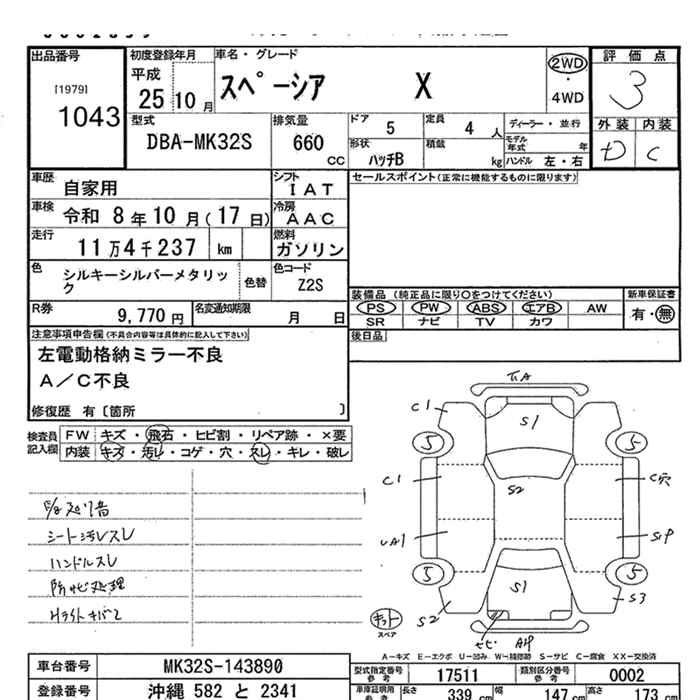 出品番号
[1979]
1043
初度登録年月
平成
25 10 月
車名・グレード
スペーシア X
2WD
・
4WD
評価点
3
外装 内装
D C
型式
DBA-MK32S
排気量
660 CC
ドア 5
定員 4 人
形状 ハッチB
積載 kg
ディーラー・並行
モデル年式 年
ハンドル 左・右
車歴 自家用
車検 令和 8 年 10 月(17 日)
走行 11 万 4 千 237 km
色 シルキーシルバーメタリック
色替
シフト IAT
冷房 AAC
燃料 ガソリン
色コード Z2S
R券 9,770 円
名変通知期限 月 日
セールスポイント(正常に機能するものに限ります)
装備品 (純正品に限り〇をつけてください)
PS PW ABS エアB AW
SR ナビ TV カワ
新車保証書
有・無
後日品
注意事項申告欄(不具合内容等は具体的に記入して下さい)
左電動格納ミラー不良
A/C不良
修復歴 有〔箇所 〕
検査員記入欄
FW キズ・飛石・ヒビ割・リペア跡・×要
内装 キズ・汚レ・コゲ・穴・スレ・キレ・破レ
シート汚レスレ
ハンドルスレ
防サビ処理
C1
S1
5
5
C1
S2
C穴
5
5
S1
S2
S3
キット
スペア
サビ
A-キズ E-エクボ U-凹み W-補修跡 S-サビ C-腐食 XX-交換済
車台番号 MK32S-143890
登録番号 沖縄 582 と 2341
型式指定番号 参考 17511
類別区分番号 参考 0002
車庫証明用 参考 長さ 339 cm 幅 147 cm 高さ 173 cm